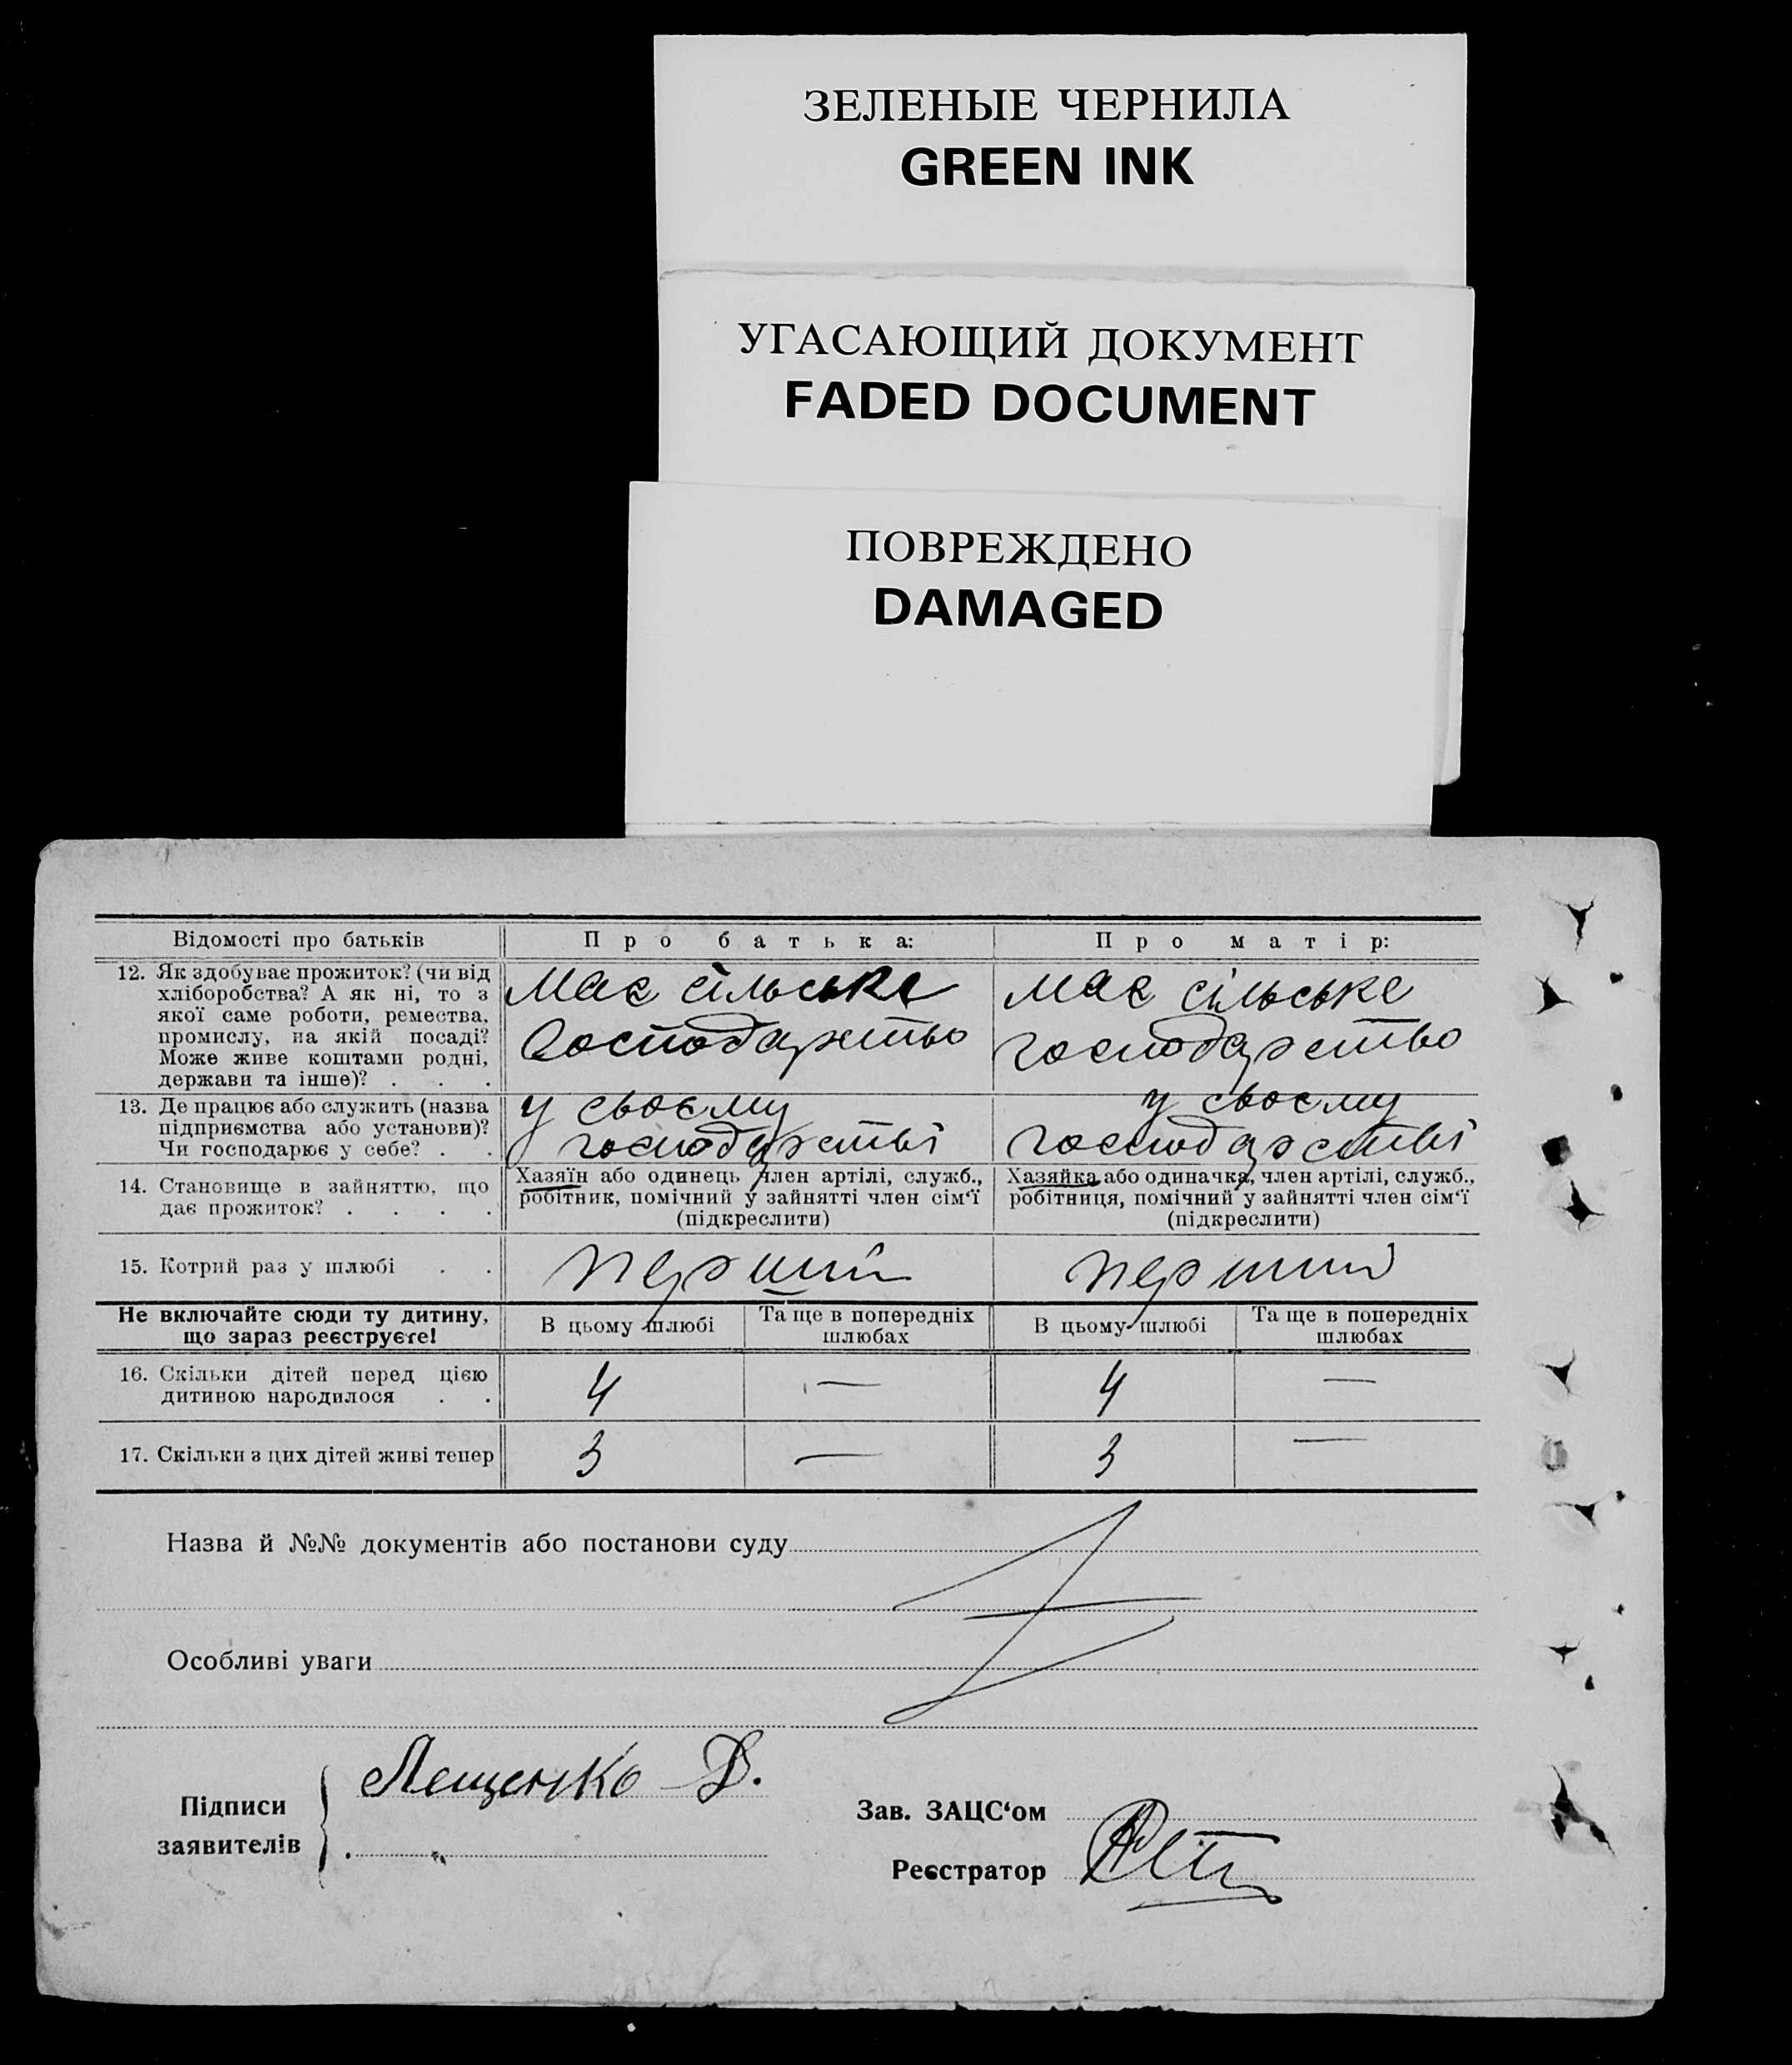 ЗЕЛЕНЫЕ ЧЕРНИЛА
GREEN INK
УГАСАЮЩИЙ ДОКУМЕНТ
FADED DOCUMENT
ПОВРЕЖДЕНО
DAMAGED
Відомості про батьків
Про батька:
Про матір:
12. Як здобуває прожиток? (чи від
хліборобства? А як ні, то з
якої саме роботи, ремества,
промислу, на якій посаді?
Може живе коштами родні,
держави та інше)? . . .
має сільське
господарство
має сільське
господарство
13. Де працює або служить (назва
підприємства або установи)?
Чи господарює у себе? . .
у своєму
господарстві
у своєму
господарстві
14. Становище в зайняттю, що
дає прожиток? . . . .
Хазяїн або одинець, член артілі, служб.,
робітник, помічний у зайнятті член сім‘ї
(підкреслити)
Хазяйка або одиначка, член артілі, служб.,
робітниця, помічний у зайнятті член сім‘ї
(підкреслити)
15. Котрий раз у шлюбі . .
перший
перший
Не включайте сюди ту дитину,
що зараз реєструєте!
В цьому шлюбі
Та ще в попередніх
шлюбах
В цьому шлюбі
Та ще в попередніх
шлюбах
16. Скільки дітей перед цією
дитиною народилося . .
4
—
4
—
17. Скільки з цих дітей живі тепер
3
—
3
—
Назва й №№ документів або постанови суду
Особливі уваги
Підписи
заявителів
Лещенко Д.
Зав. ЗАЦС‘ом
Реєстратор